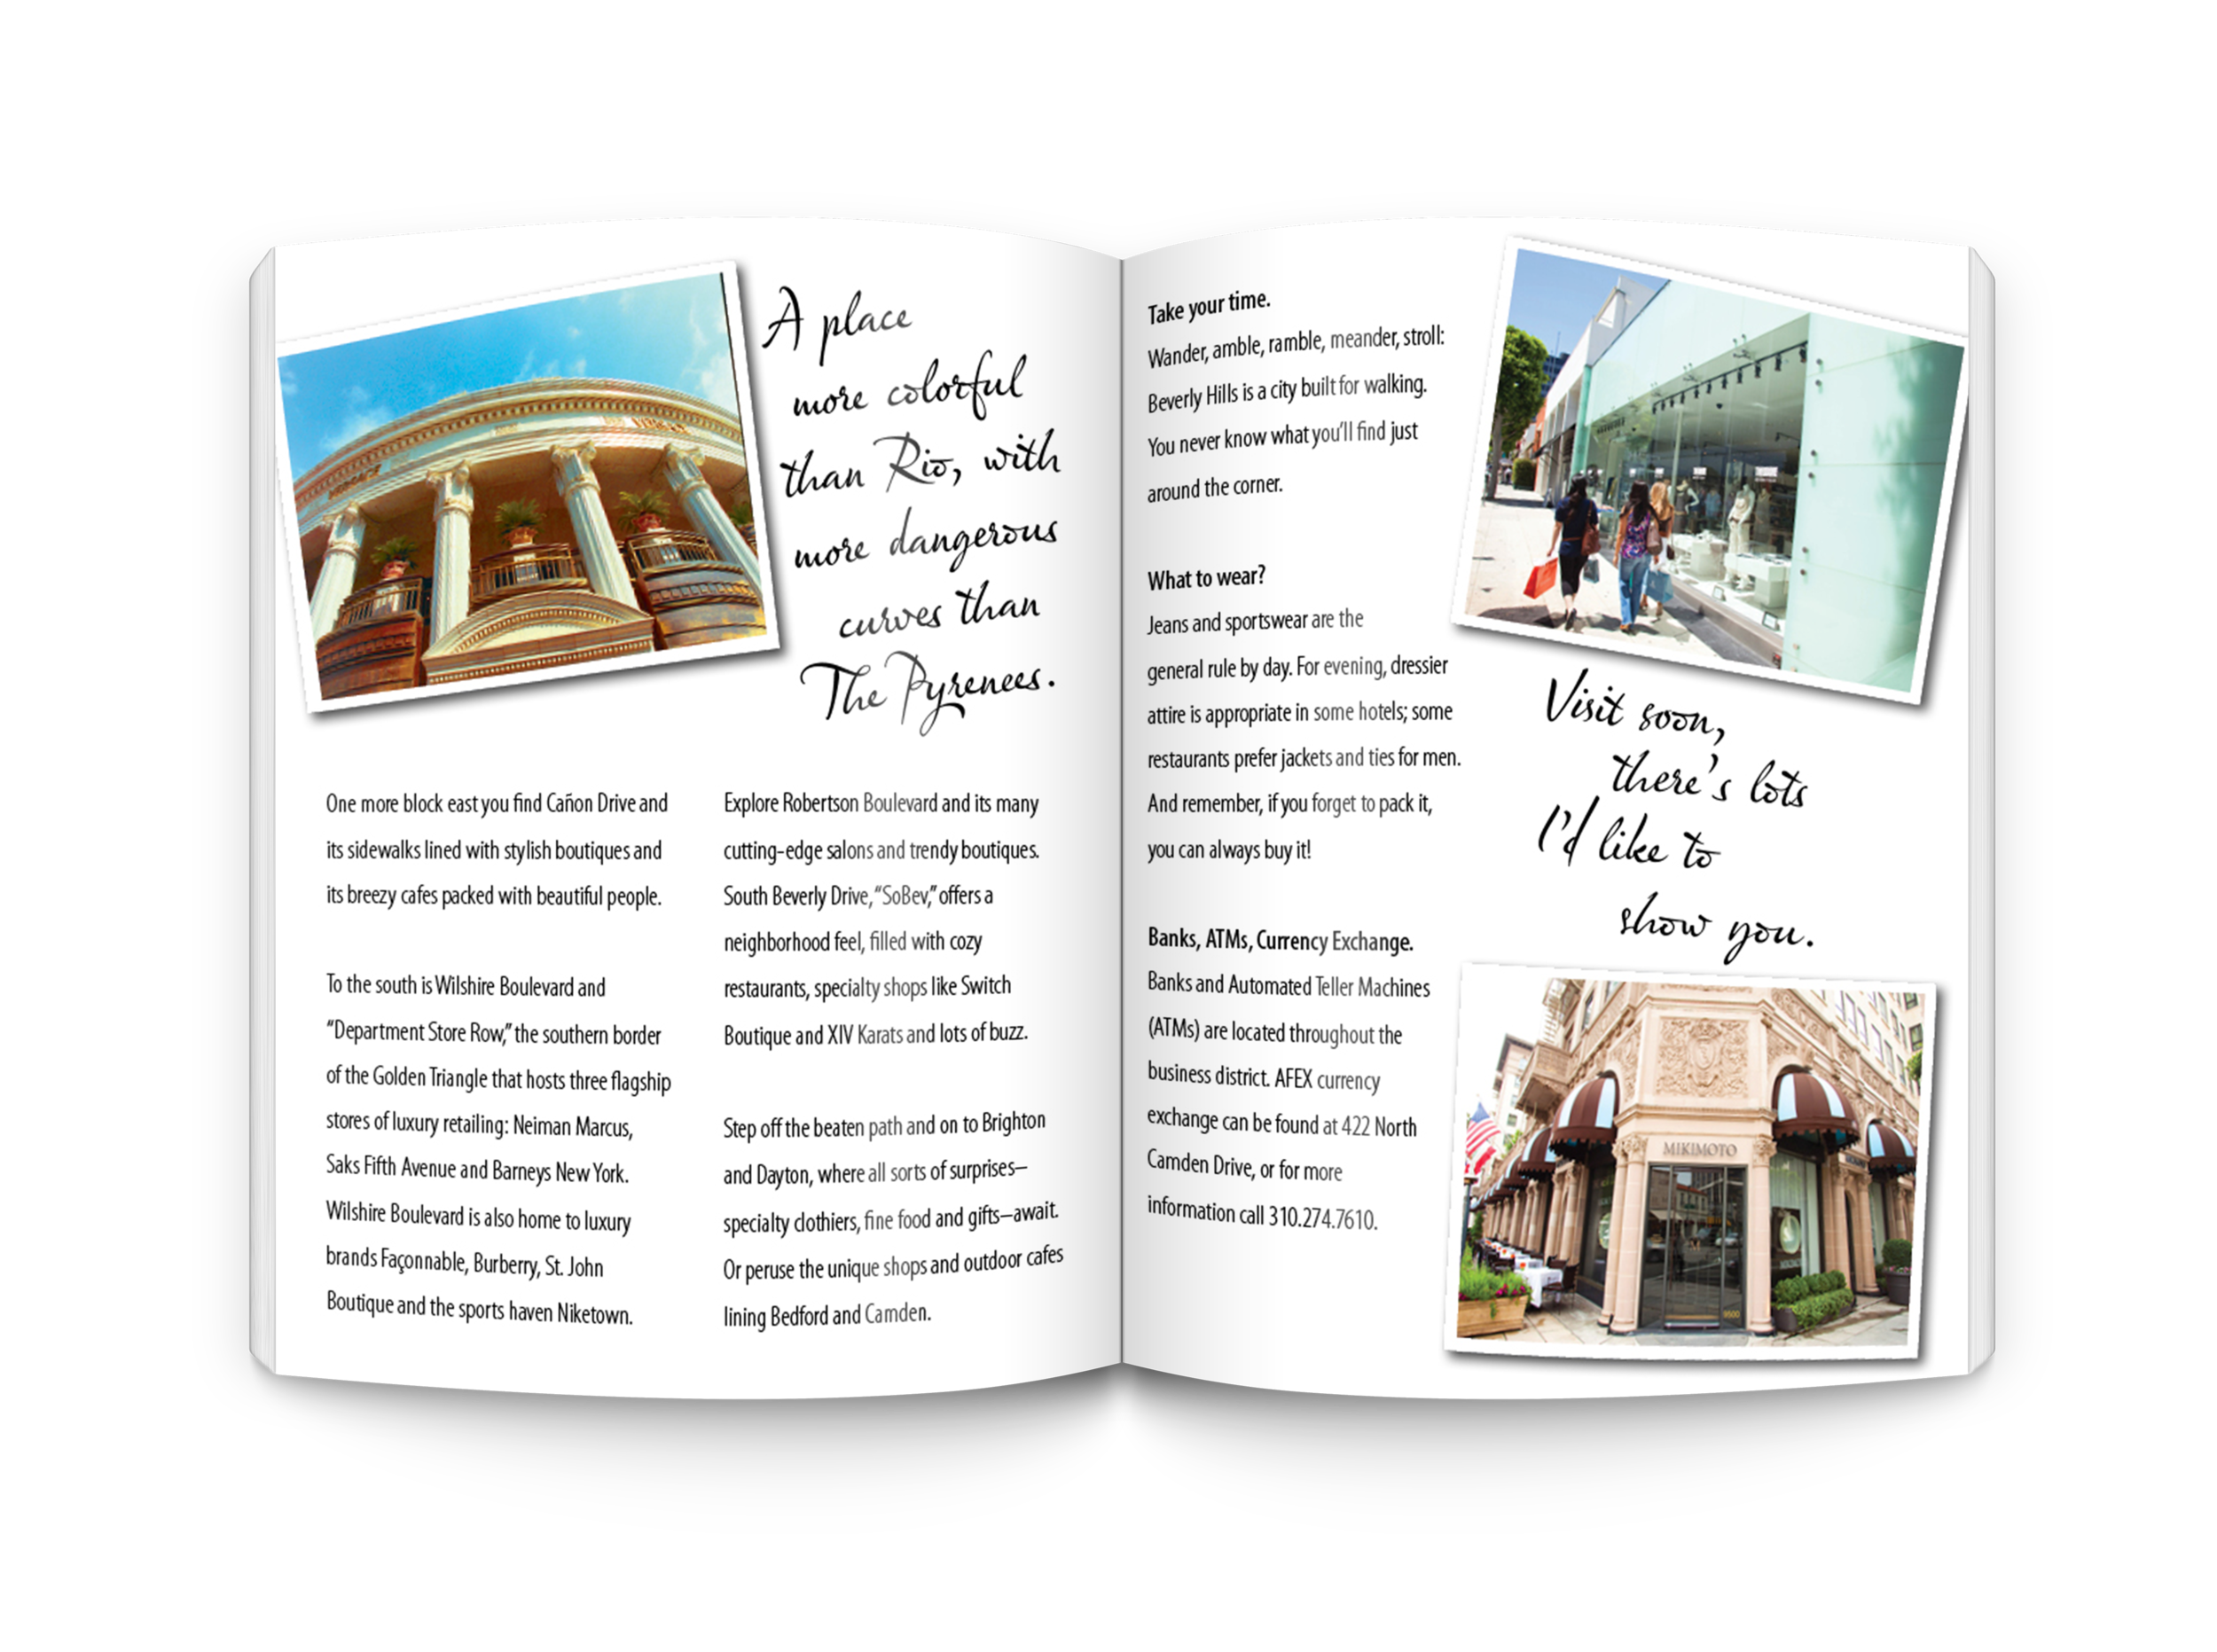 A place
more colorful
than Rio, with
more dangerous
curves than
The Pyrenees.
One more block east you find Cañon Drive and
its sidewalks lined with stylish boutiques and
its breezy cafes packed with beautiful people.
To the south is Wilshire Boulevard and
“Department Store Row,” the southern border
of the Golden Triangle that hosts three flagship
stores of luxury retailing: Neiman Marcus,
Saks Fifth Avenue and Barneys New York.
Wilshire Boulevard is also home to luxury
brands Façonnable, Burberry, St. John
Boutique and the sports haven Niketown.
Explore Robertson Boulevard and its many
cutting-edge salons and trendy boutiques.
South Beverly Drive, “SoBev,” offers a
neighborhood feel, filled with cozy
restaurants, specialty shops like Switch
Boutique and XIV Karats and lots of buzz.
Step off the beaten path and on to Brighton
and Dayton, where all sorts of surprises–
specialty clothiers, fine food and gifts–await.
Or peruse the unique shops and outdoor cafes
lining Bedford and Camden.
Take your time.
Wander, amble, ramble, meander, stroll:
Beverly Hills is a city built for walking.
You never know what you’ll find just
around the corner.
What to wear?
Jeans and sportswear are the
general rule by day. For evening, dressier
attire is appropriate in some hotels; some
restaurants prefer jackets and ties for men.
And remember, if you forget to pack it,
you can always buy it!
Banks, ATMs, Currency Exchange.
Banks and Automated Teller Machines
(ATMs) are located throughout the
business district. AFEX currency
exchange can be found at 422 North
Camden Drive, or for more
information call 310.274.7610.
Visit soon,
there’s lots
I’d like to
show you.
MIKIMOTO
9500